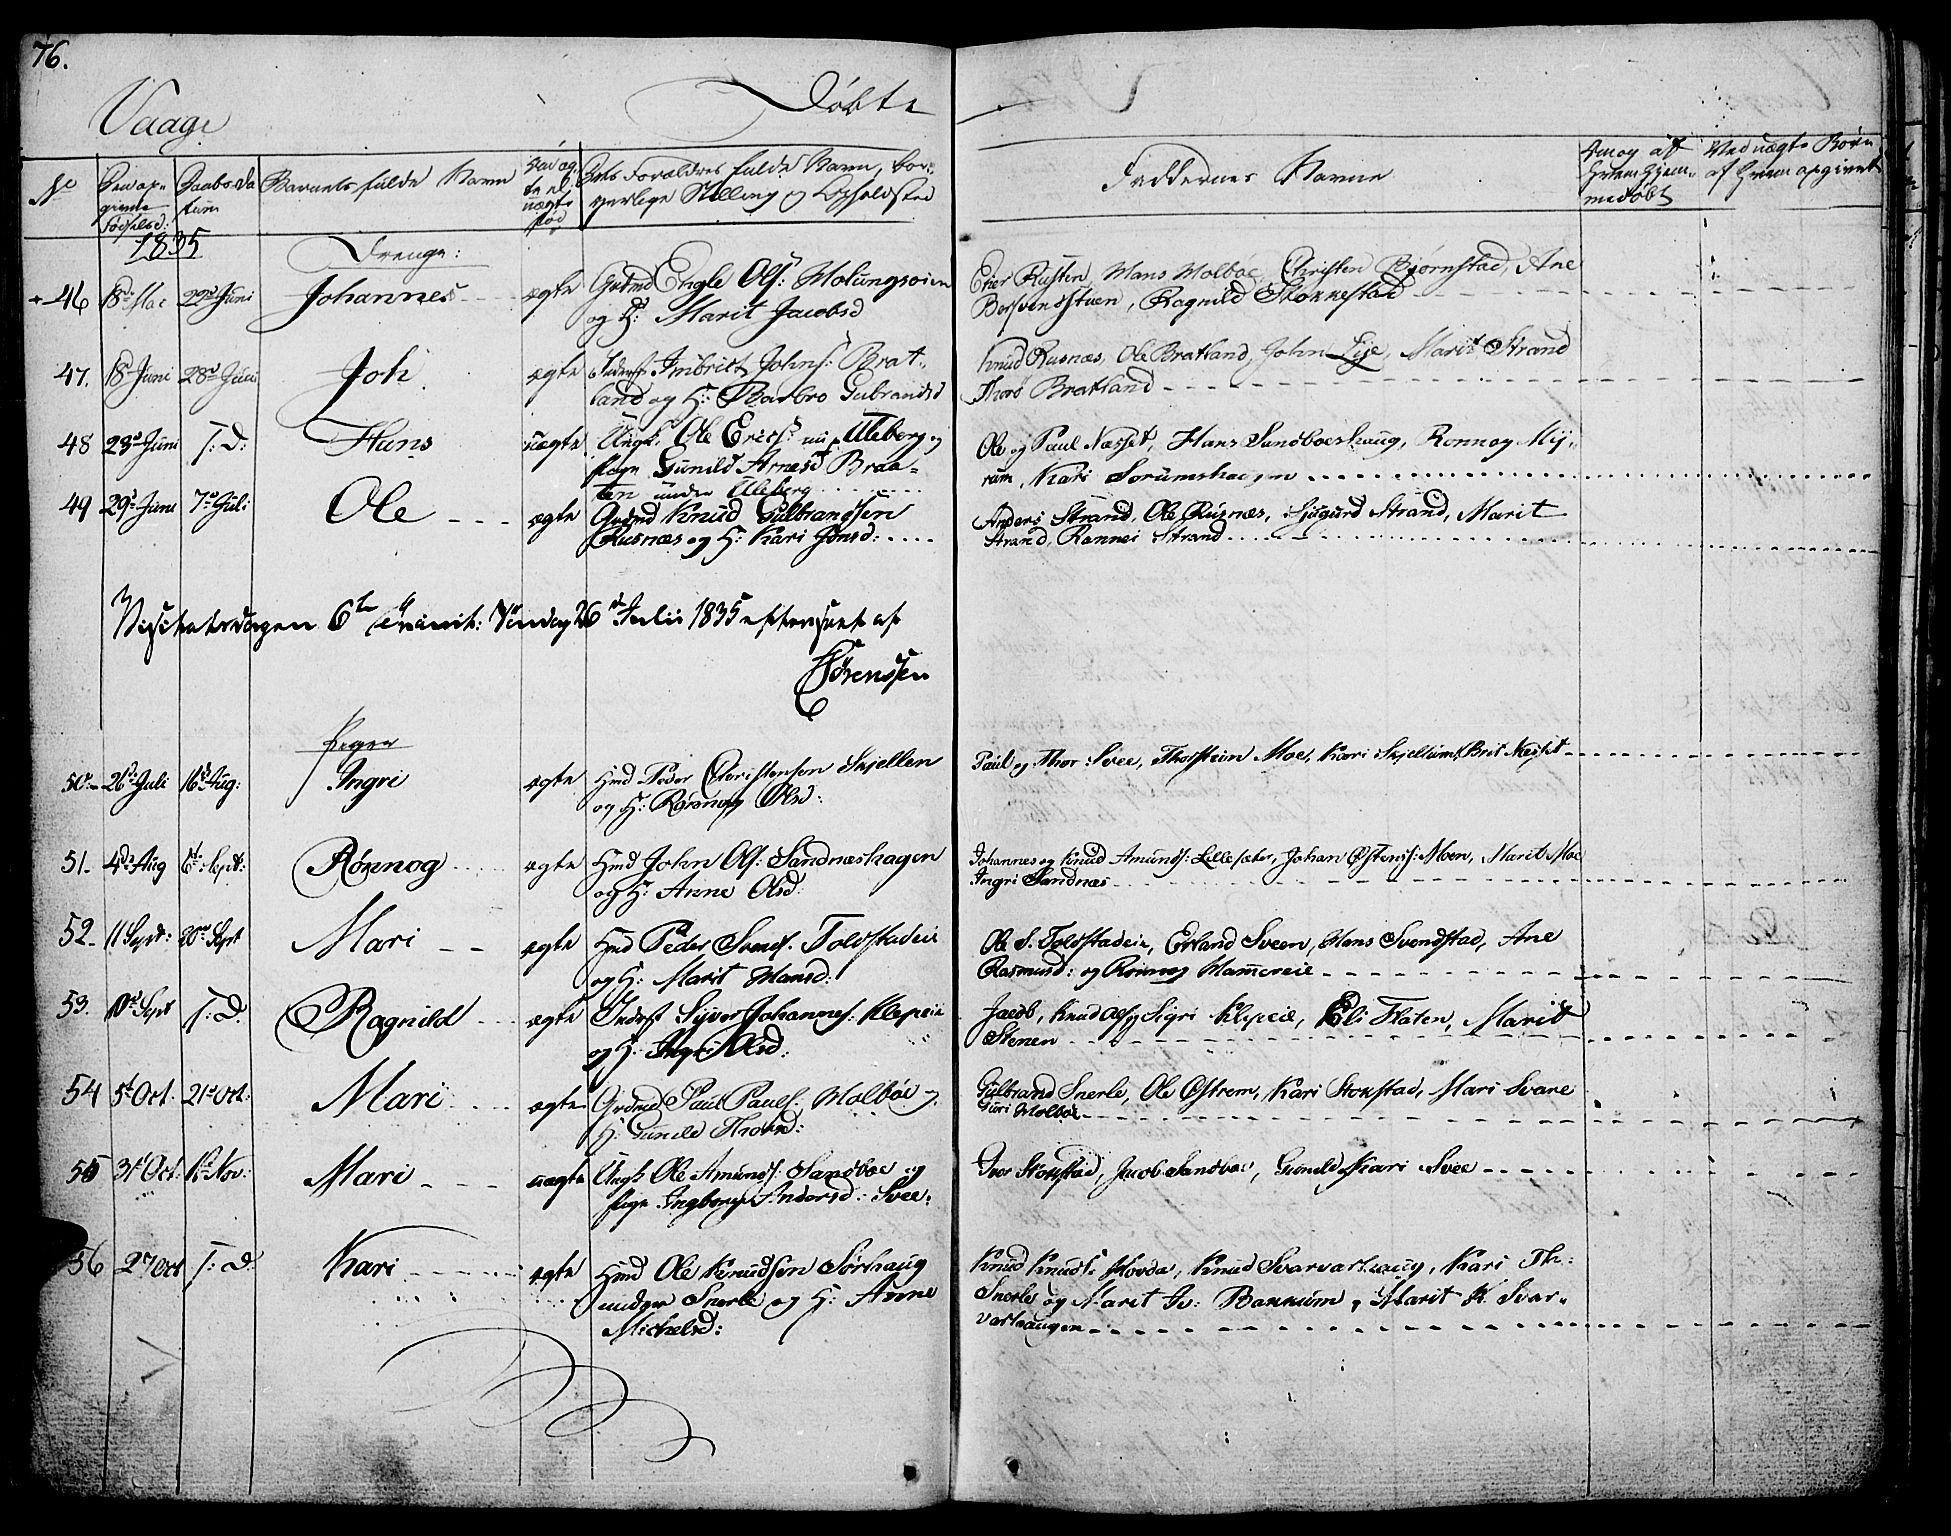 76.
Vaage
Døbte
No
Den op-
givne
Fødselsd:
Daabs Da
tum
Barnets fulde Navn
ægte el
uægte
fød
Forældres fulde Navn, bor-
gerlige Stilling og Opholdsted
Faddernes Navne
Af hvem hjem-
medøbt
Ved uægte Børn
af hvem opgivet
1835
Drenge:
+ 46 18de Mai 29de Juni Johannes ægte Grdmd Engle Ols: Molungsøien
og H: Marit Jacobsd
Hans Molbøe, Christen Bjørnstad, Ane
Ragnild Stokkestad
47. 18de Juni 28de Juni Joh ægte Inderst Imbrict Johns: Brat-
land og H: Barbro Gubrandsd
Knud Rusnæs, Ole Bratland, John Lye, Marit Strand
Thorø Bratland
48 23de Juni T: D: Hans uægte Ungk: Ole Erics: Uleberg og
Pige Gunild Arnesd Braa-
ten under Uleberg
Ole og Paul Næsset, Hans Sandboeshaug, Ronnog My-
rum, Kari Sorumshagen
49 29de Juni 7de Juli Ole ægte Grdmd Knud Gulbrandsen
Rusnæs og H: Kari Jonsd:
Anders Strand, Ole Rusnæs, Sjugurd Strand, Marit
Strand, Rannei Strand
Visitatsdagen 6te Trinit: Søndag 26de Julii 1835 efterseet af
Sørenssen
Piger
50 26de Juli 16de Aug: Ingri ægte Hmd Peder Christensen Skjellen
og H: Rønnog Olsd:
Paul og Thor Svee, Thorsteen Moe, Kari Skjellum, Brit Næsset
51. 4de Aug 6te Sept: Rønnog ægte Hmd John Ols: Sandnæshagen
og H: Anne Olsd:
Johannes og Knud Amunds: Lillesæter, Johan Østens: Moen, Marit Moe
Ingri Sandnæs
52. 11 Sept: 20de Sept Mari ægte Hmd Peder Svends: Toldstadeie
og H: Marit Hansd:
Ole S. Toldstadeie, Erland Sveen, Hans Svendstad, Ane
Rasmusd: og Rønnog Hammereie
53. 10de Sept T: D. Ragnild ægte Inderst Syver Johannes: Klepeie
og H: Ingri Olsd:
Jacob, Knud og Sigri Klepeie, Eli Flaten, Marit
Stenen
54 5te Oct. 21de Oct: Mari ægte Grdmd Paul Pauls: Molbøe og
H: Gunild Thorsd:
Gulbrand Snerle, Ole Østrem, Kari Stokstad, Mari Svare
Guri Molbøe
55 3de Oct: 1ste Nov: Mari uægte Ungk: Ole Amunds: Sandboe og
Pige Ingborg Andersd: Svee.
Iver Stokstad, Jacob Sandboe, Gunild og Kari Svee
56 27 Oct T: D: Kari ægte Hmd Ole Knudsen Sørhaug
under Snerle og H: Anne
Michelsd:
Knud Knuds: Hovda, Knud Svarvarhaug, Kari Th:
Snerle og Marit Iv: Bakkum, Marit K. Svar-
varhaugen